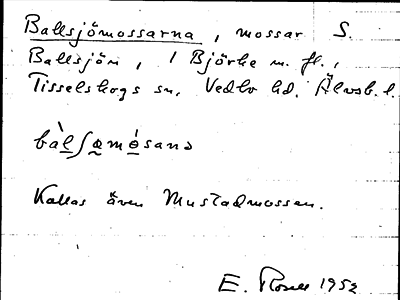 Ballsjömossarna, mossar S.
Ballsjön, 1 Björke m. fl.,
Tisselskogs sn, Vedbo hd, Älvsb. l.
Kallas även Mustadmossen.
E. 1952